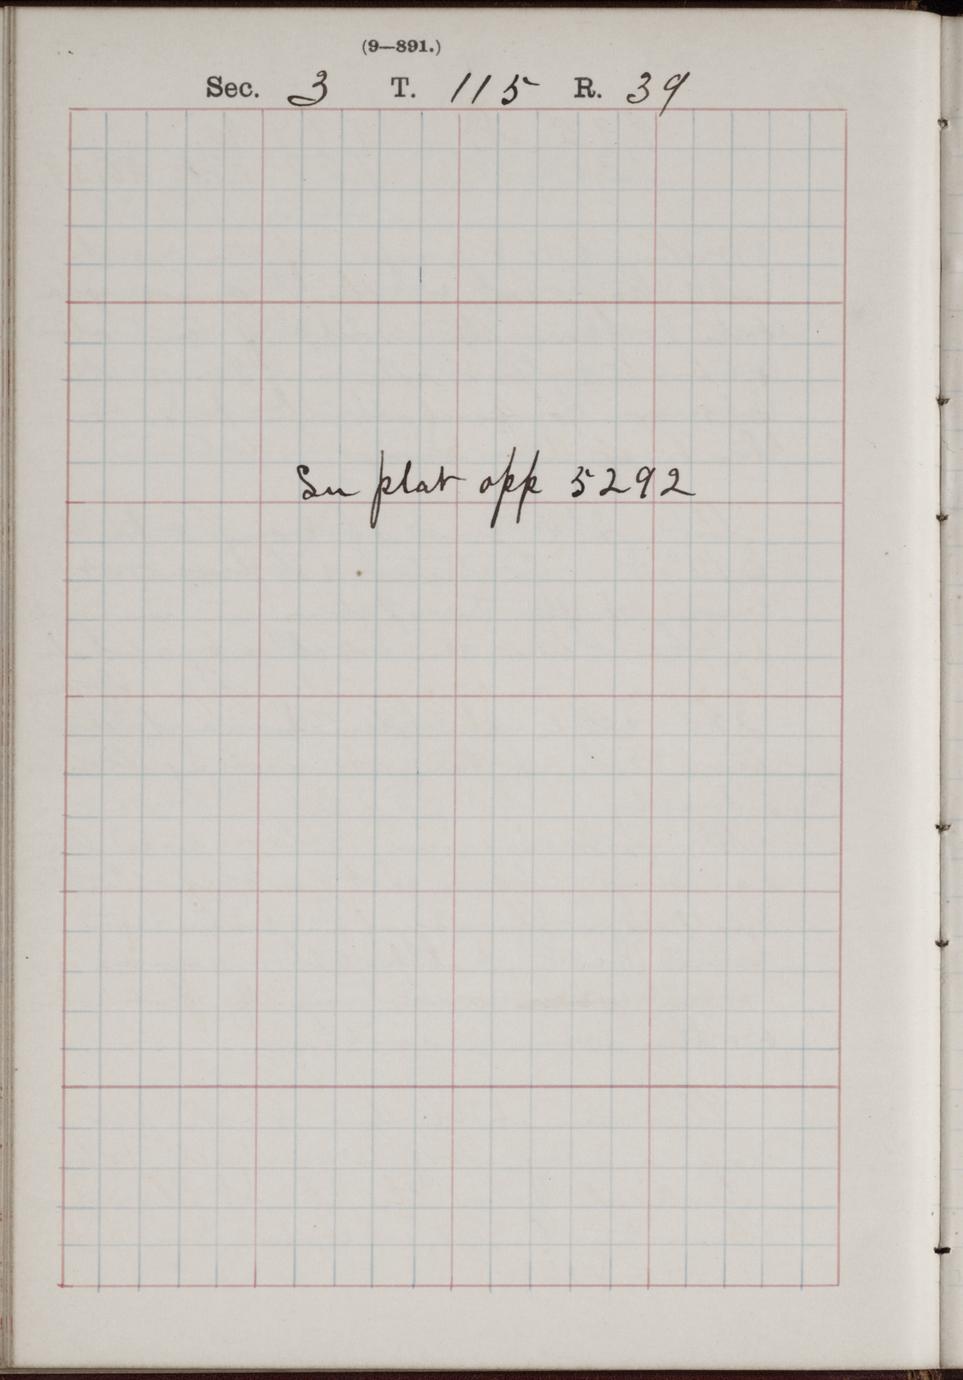 (9—891.)
Sec. 3 T. 115 R. 39
See plat opp 5292